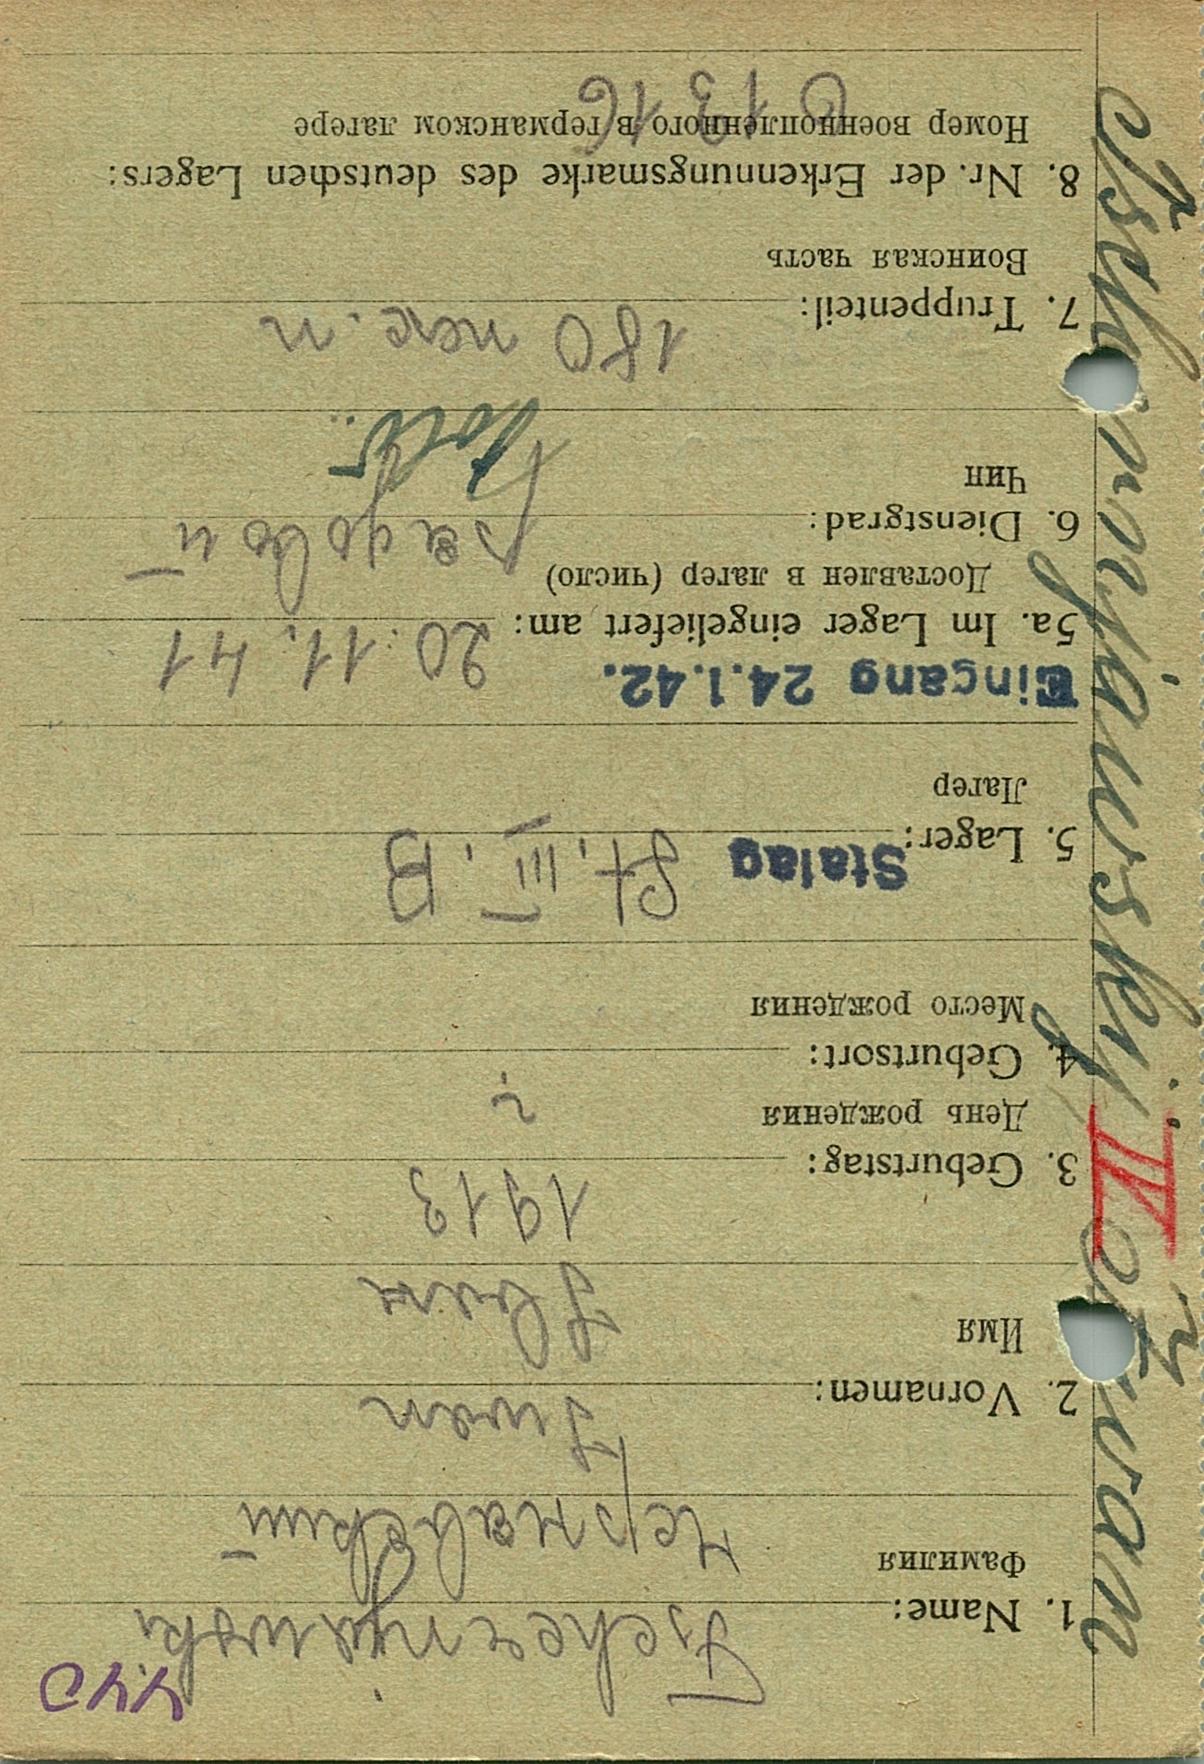 440
Tschernjawski
1. Name:
Фамилия
Чернавский
Iwan
2. Vornamen:
Имя
Иван
1913
3. Geburtstag:
День рождения
?
4. Geburtsort:
Место рождения
St. III. B
5. Lager: Stalag
Лагер
Eingang 24.1.42.
20.11.41
5a. Im Lager eingeliefert am:
Доставлен в лагер (число)
рядовой
6. Dienstgrad:
Чин
Sold.
180 пех. п
7. Truppenteil:
Воинская часть
8. Nr. der Erkennungsmarke des deutschen Lagers:
Номер военнопленного в германском лагере
Tschernonjawskyj
IV
Iwan